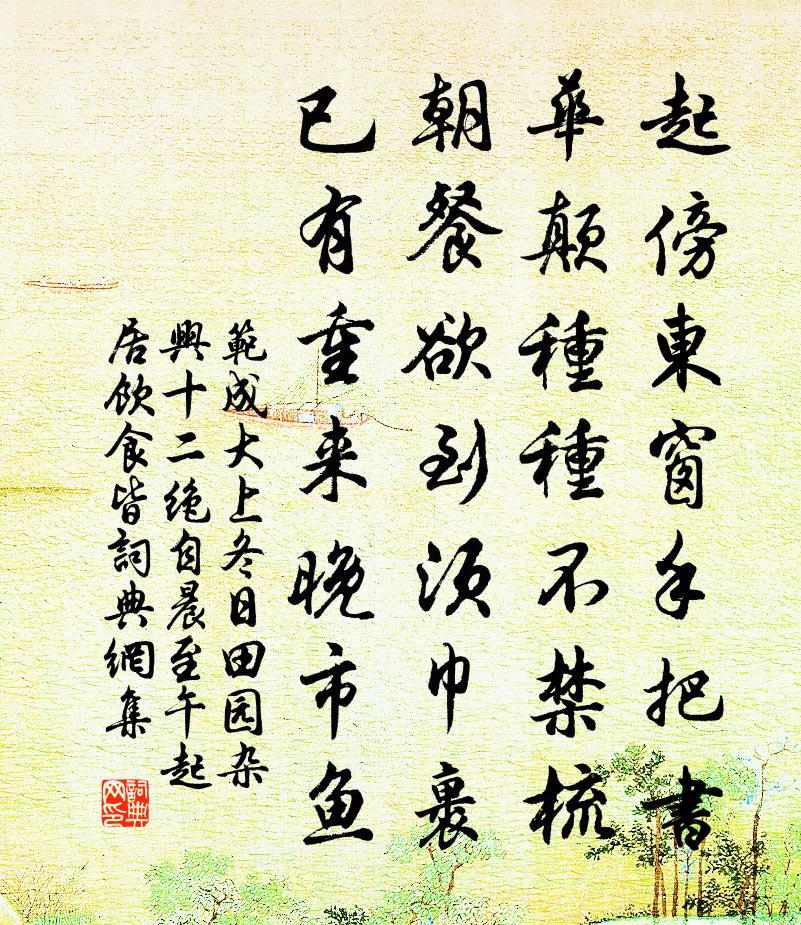 起傍東窗手把書
華顛種種不禁梳
朝餐欲到須巾裹
已有重来晚市魚
範成大上冬日田园杂
興十二绝自晨至午起
居飲食皆詞典網集
詞典
网印